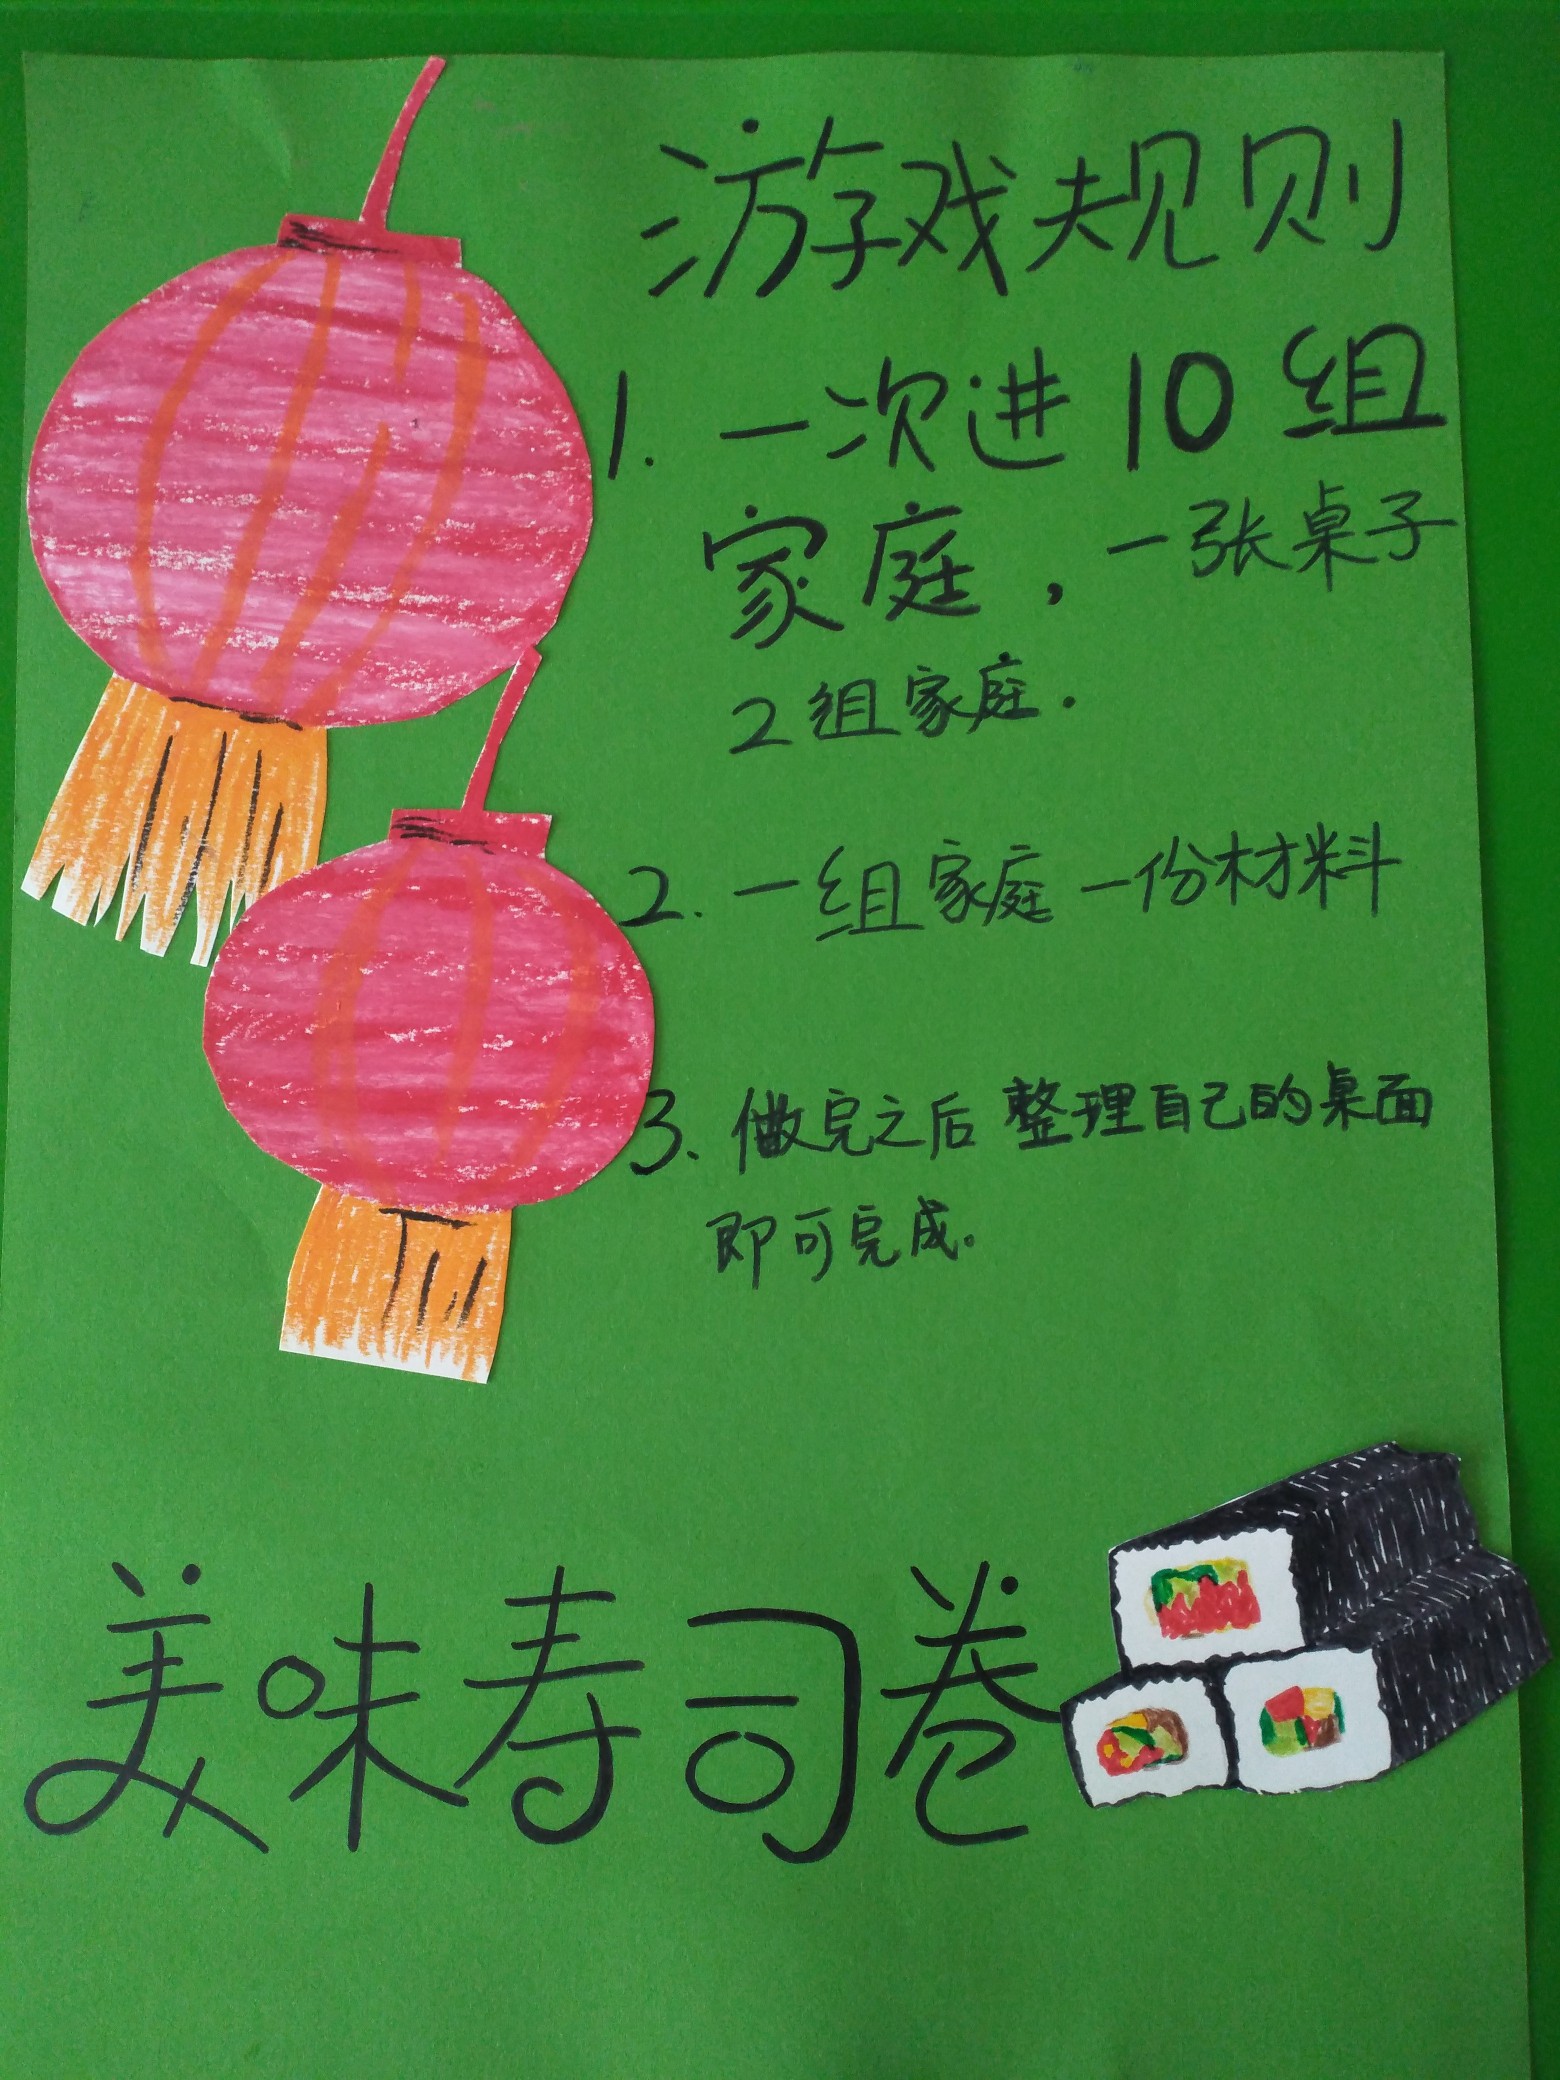 游戏规则
1. 一次进10组
家庭，一张桌子
2组家庭.
2. 一组家庭一份材料
3、做完之后 整理自己的桌面
即可完成。
美味寿司卷